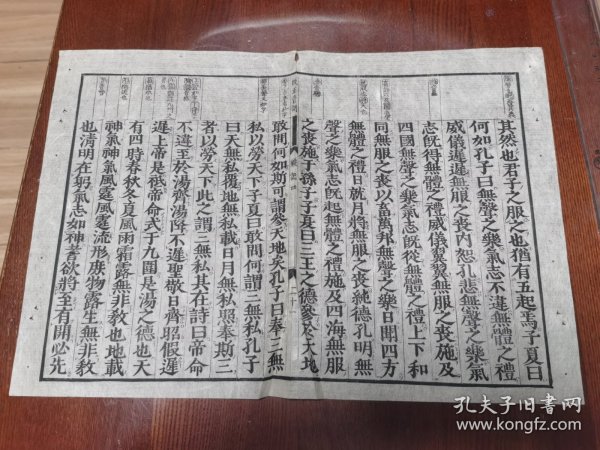 其然也君子之服之也猶有五起焉子夏曰
何如孔子曰無聲之樂氣志不違無體之禮
威儀遲遲無服之喪內恕孔悲無聲之樂氣
志旣得無體之禮威儀翼翼無服之喪施及
四國無聲之樂氣志旣從無體之禮上下和
同無服之喪以畜萬邦無聲之樂日聞四方
無體之禮日就月將無服之喪純德孔明無
聲之樂氣志旣起無體之禮施及四海無服
之喪施于孫子子夏曰三王之德參於天地
敢問何如斯可謂參天地矣孔子曰奉三無
私以勞天下子夏曰敢問何謂三無私孔子
曰天無私覆地無私載日月無私照奉斯三
者以勞天下此之謂三無私其在詩曰帝命
不違至於湯齊湯降不遲聖敬日齊昭假遲
遲上帝是祗帝命式于九圍是湯之德也天
有四時春秋冬夏風雨霜露無非教也地載
神氣神氣風霆風霆流形庶物露生無非教
也淸明在躬氣志如神耆欲將至有開必先
孔夫子旧书网
www.kongfz.com